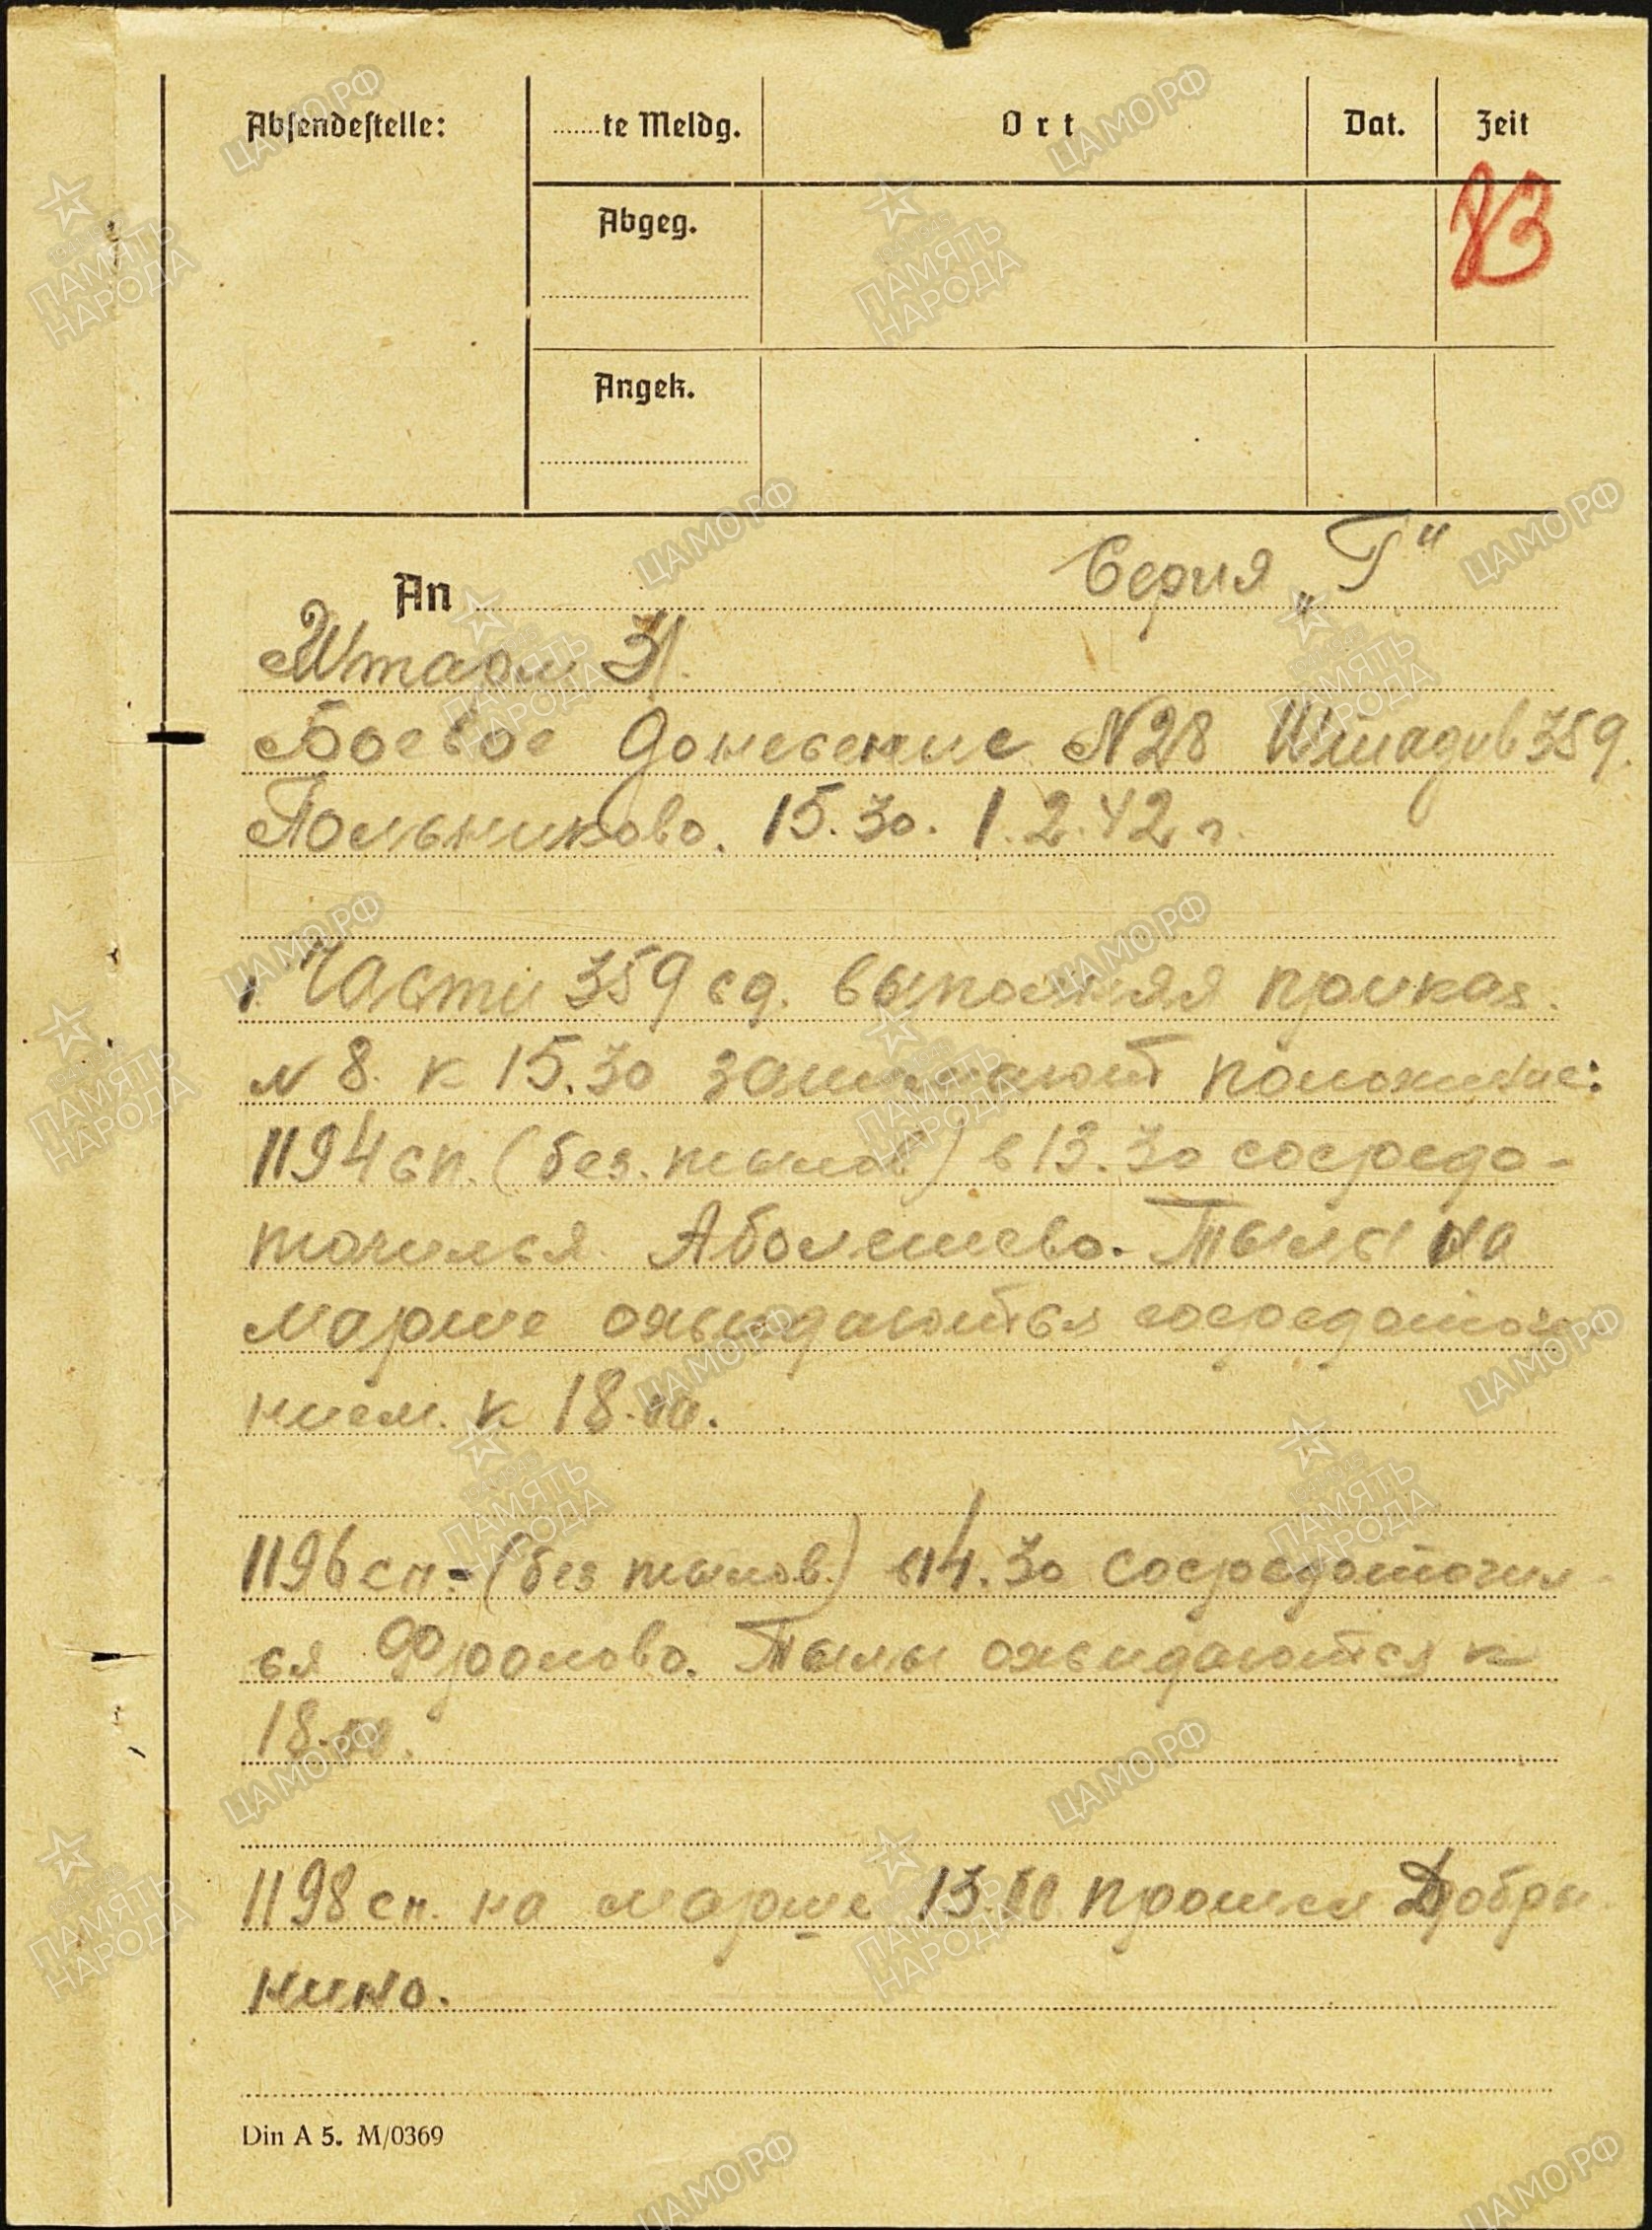 Absendestelle: ......te Meldg. Ort Dat. Zeit
83
Abgeg.
Angek.
Серия „Г“
An
Штарм 31.
Боевое донесение №28 Штадив 359.
Польниково. 15.30. 1.2.42 г.
1. Части 359 сд. выполняя приказ.
№ 8. к 15.30 занимают положение:
1194 сп. (без. тылов) в 13.30 сосредо-
точился Аболешево. Тылы на
марше ожидаються сосредоточе
нием. к 18.00.
1196 сп. - (без тылов.) в 14.30 сосредоточил-
ся Фролово. Тылы ожидаются к
18.00.
1198 сп. на марше 13.00 прошел Добри
нино.
Din A 5. M/0369